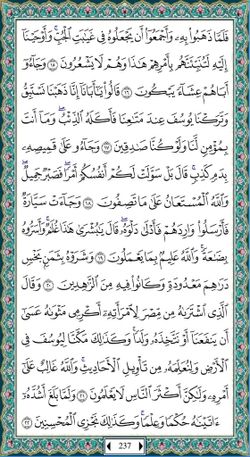 فَلَمَّا ذَهَبُوا۟ بِهِۦ وَأَجْمَعُوٓا۟ أَن يَجْعَلُوهُ فِى غَيَٰبَتِ ٱلْجُبِّ ۚ وَأَوْحَيْنَآ
إِلَيْهِ لَتُنَبِّئَنَّهُم بِأَمْرِهِمْ هَٰذَا وَهُمْ لَا يَشْعُرُونَ ١٥ وَجَآءُوٓ
أَبَاهُمْ عِشَآءً يَبْكُونَ ١٦ قَالُوا۟ يَٰٓأَبَانَآ إِنَّا ذَهَبْنَا نَسْتَبِقُ
وَتَرَكْنَا يُوسُفَ عِندَ مَتَٰعِنَا فَأَكَلَهُ ٱلذِّئْبُ ۖ وَمَآ أَنتَ
بِمُؤْمِنٍ لَّنَا وَلَوْ كُنَّا صَٰدِقِينَ ١٧ وَجَآءُو عَلَىٰ قَمِيصِهِۦ
بِدَمٍ كَذِبٍ ۚ قَالَ بَلْ سَوَّلَتْ لَكُمْ أَنفُسُكُمْ أَمْرًا ۖ فَصَبْرٌ جَمِيلٌ ۖ
وَٱللَّهُ ٱلْمُسْتَعَانُ عَلَىٰ مَا تَصِفُونَ ١٨ وَجَآءَتْ سَيَّارَةٌ
فَأَرْسَلُوا۟ وَارِدَهُمْ فَأَدْلَىٰ دَلْوَهُۥ ۖ قَالَ يَٰبُشْرَىٰ هَٰذَا غُلَٰمٌ ۚ وَأَسَرُّوهُ
بِضَٰعَةً ۚ وَٱللَّهُ عَلِيمٌۢ بِمَا يَعْمَلُونَ ١٩ وَشَرَوْهُ بِثَمَنٍۭ بَخْسٍ
دَرَٰهِمَ مَعْدُودَةٍ وَكَانُوا۟ فِيهِ مِنَ ٱلزَّٰهِدِينَ ٢٠ وَقَالَ
ٱلَّذِى ٱشْتَرَىٰهُ مِن مِّصْرَ لِٱمْرَأَتِهِۦٓ أَكْرِمِى مَثْوَىٰهُ عَسَىٰٓ
أَن يَنفَعَنَآ أَوْ نَتَّخِذَهُۥ وَلَدًا ۚ وَكَذَٰلِكَ مَكَّنَّا لِيُوسُفَ فِى
ٱلْأَرْضِ وَلِنُعَلِّمَهُۥ مِن تَأْوِيلِ ٱلْأَحَادِيثِ ۚ وَٱللَّهُ غَالِبٌ عَلَىٰٓ
أَمْرِهِۦ وَلَٰكِنَّ أَكْثَرَ ٱلنَّاسِ لَا يَعْلَمُونَ ٢١ وَلَمَّا بَلَغَ أَشُدَّهُۥٓ
ءَاتَيْنَٰهُ حُكْمًا وَعِلْمًا ۚ وَكَذَٰلِكَ نَجْزِى ٱلْمُحْسِنِينَ ٢٢
237